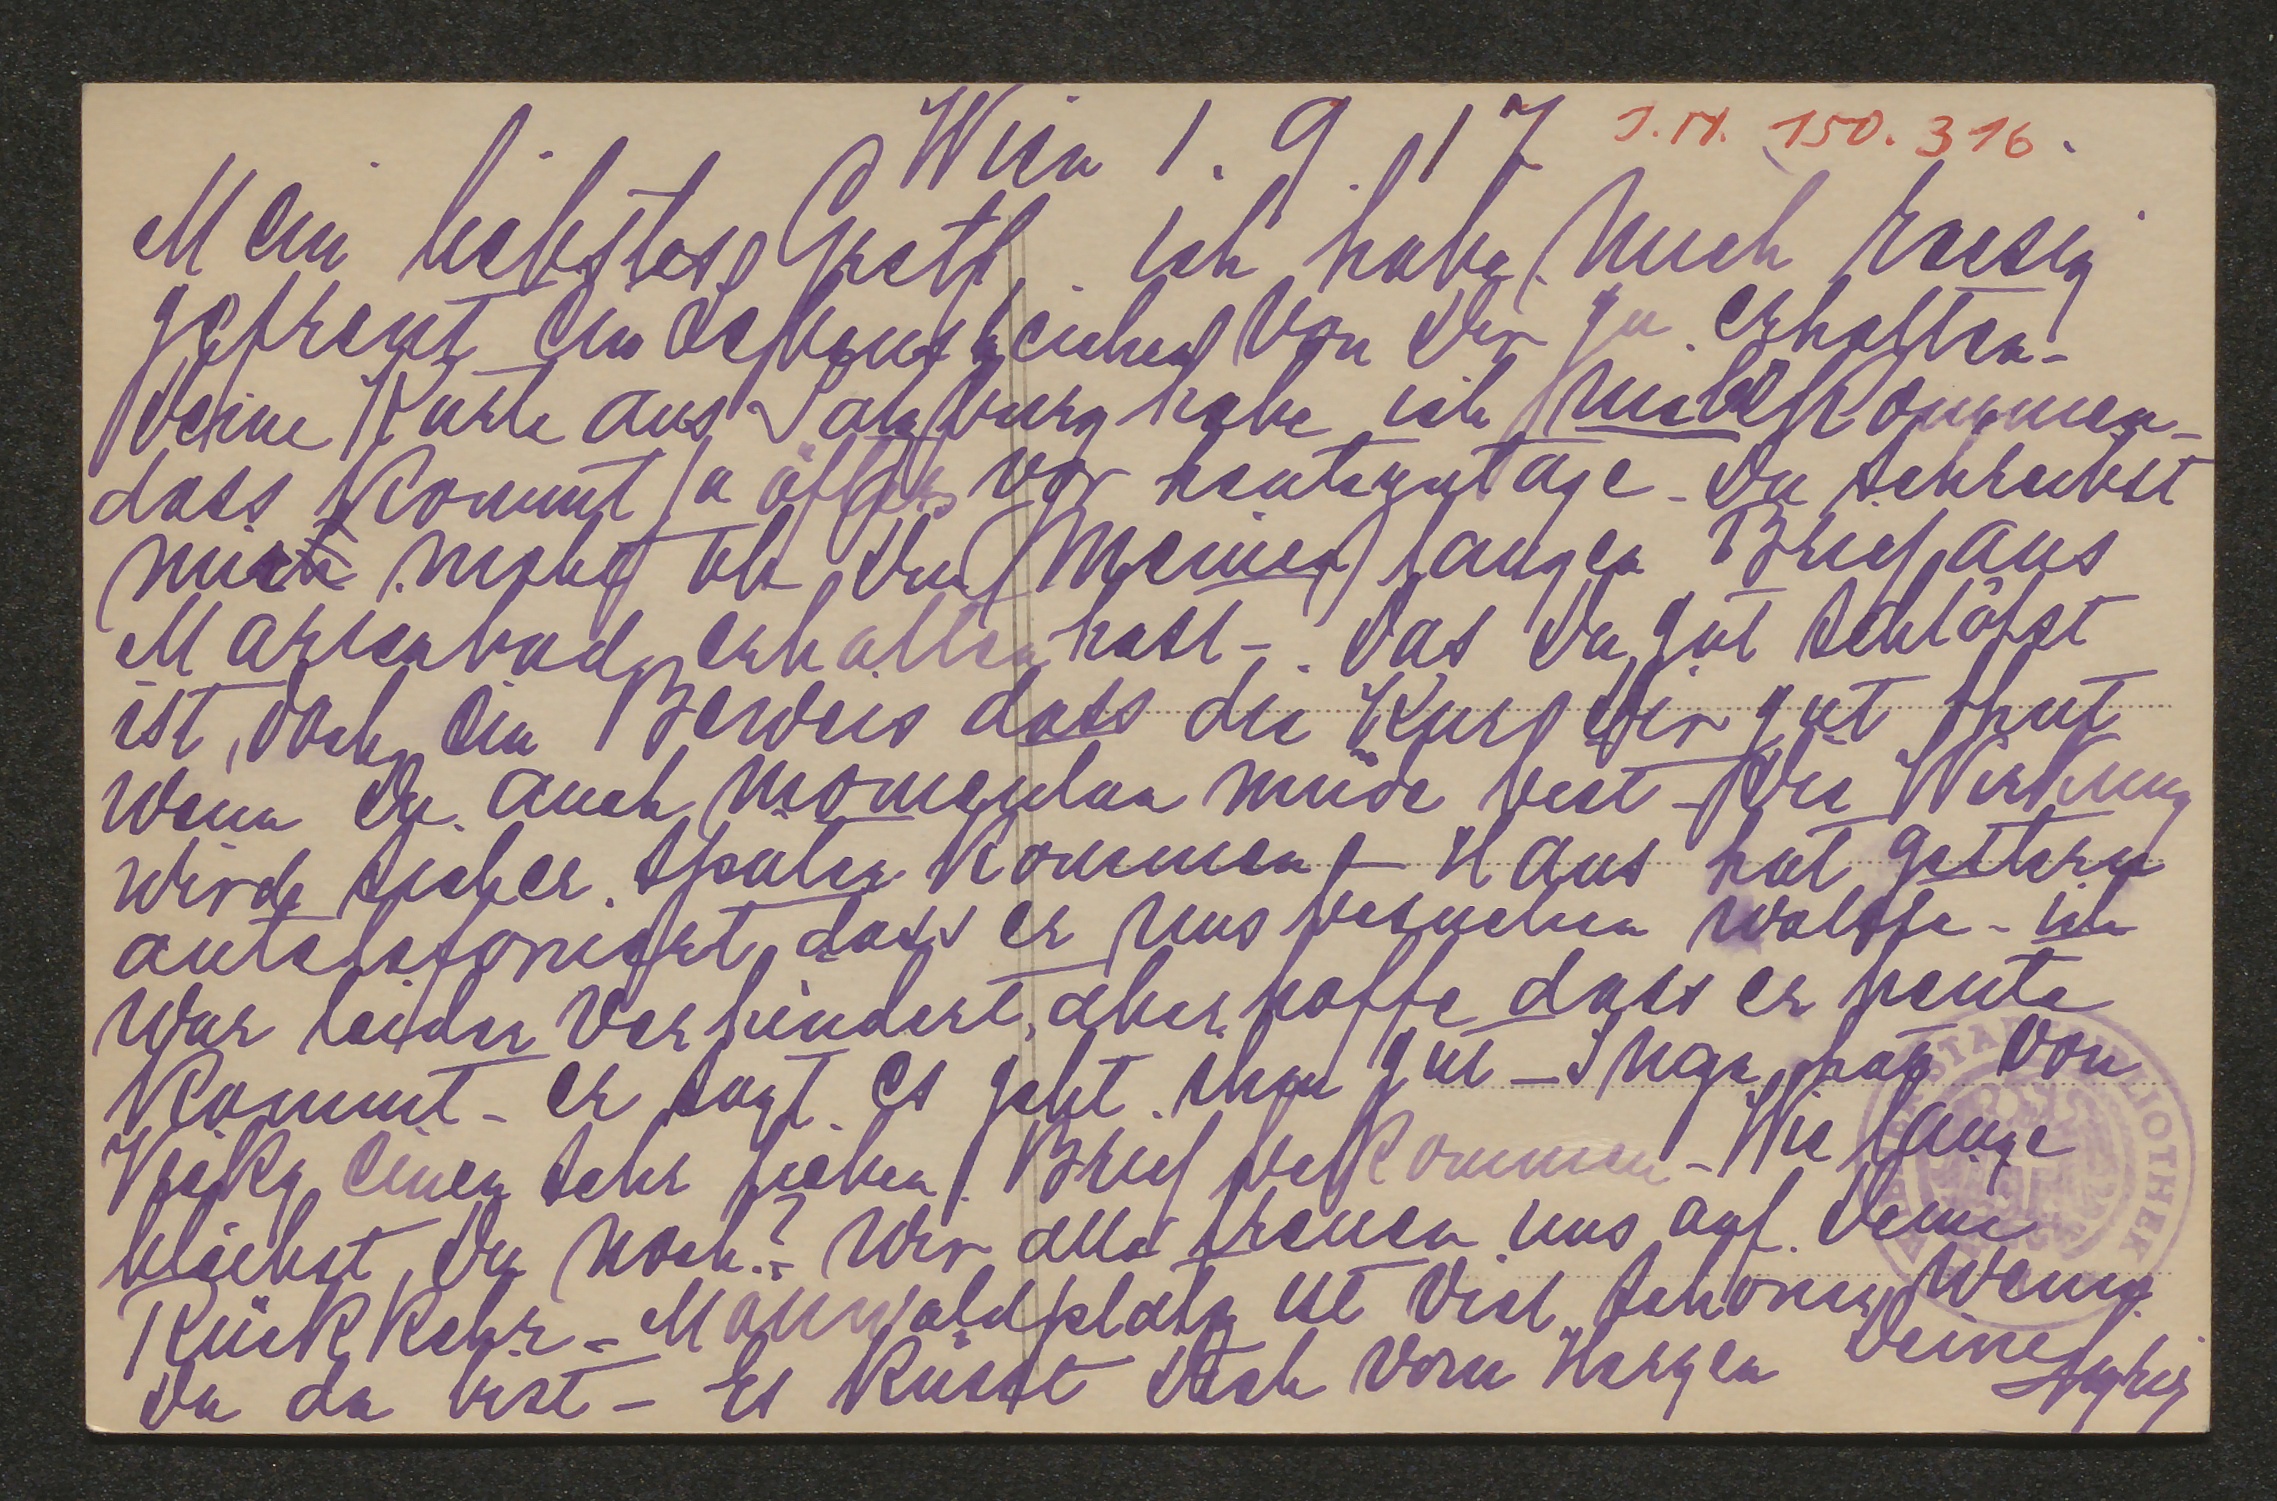 Wien 1.9.17 I.N. 150.316.
Mein liebstes Gretl ich habe mich riesig
gefreut ein Lebenszeichen von Dir zu erhalten -
Deine Karte aus Salzburg habe ich nie bekommen -
dass kommt ja öfters vor heutzutage - Du schreibst
mir nicht ob Du meinen langen Brief aus
Marienbad erhalten hast - Das Du gut schläfst
ist doch ein Beweis dass die Kur Dir gut thut
wenn Du auch momentan müde bist - Die Wirkung
wird sicher später kommen - Hans hat gestern
antelefoniert dass er uns besuchen wollte - ich
war leider verhindert, aber hoffe dass er heute
kommt - er sagt es geht ihm gut - Inga hat von
einen sehr lieben Brief bekommen - Wie lange
bleibst Du noch? - Wir alle freuen uns auf Deine
Rückkehr - Mannwaldplatz ist viel schöner wenn
Du da bist - Es küsst Dich vom Herzen Deine
STADTBIBLIOTHEK